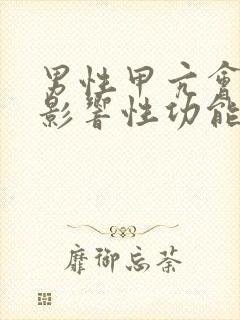 男性甲亢會
影響性功能
靡御忘荼